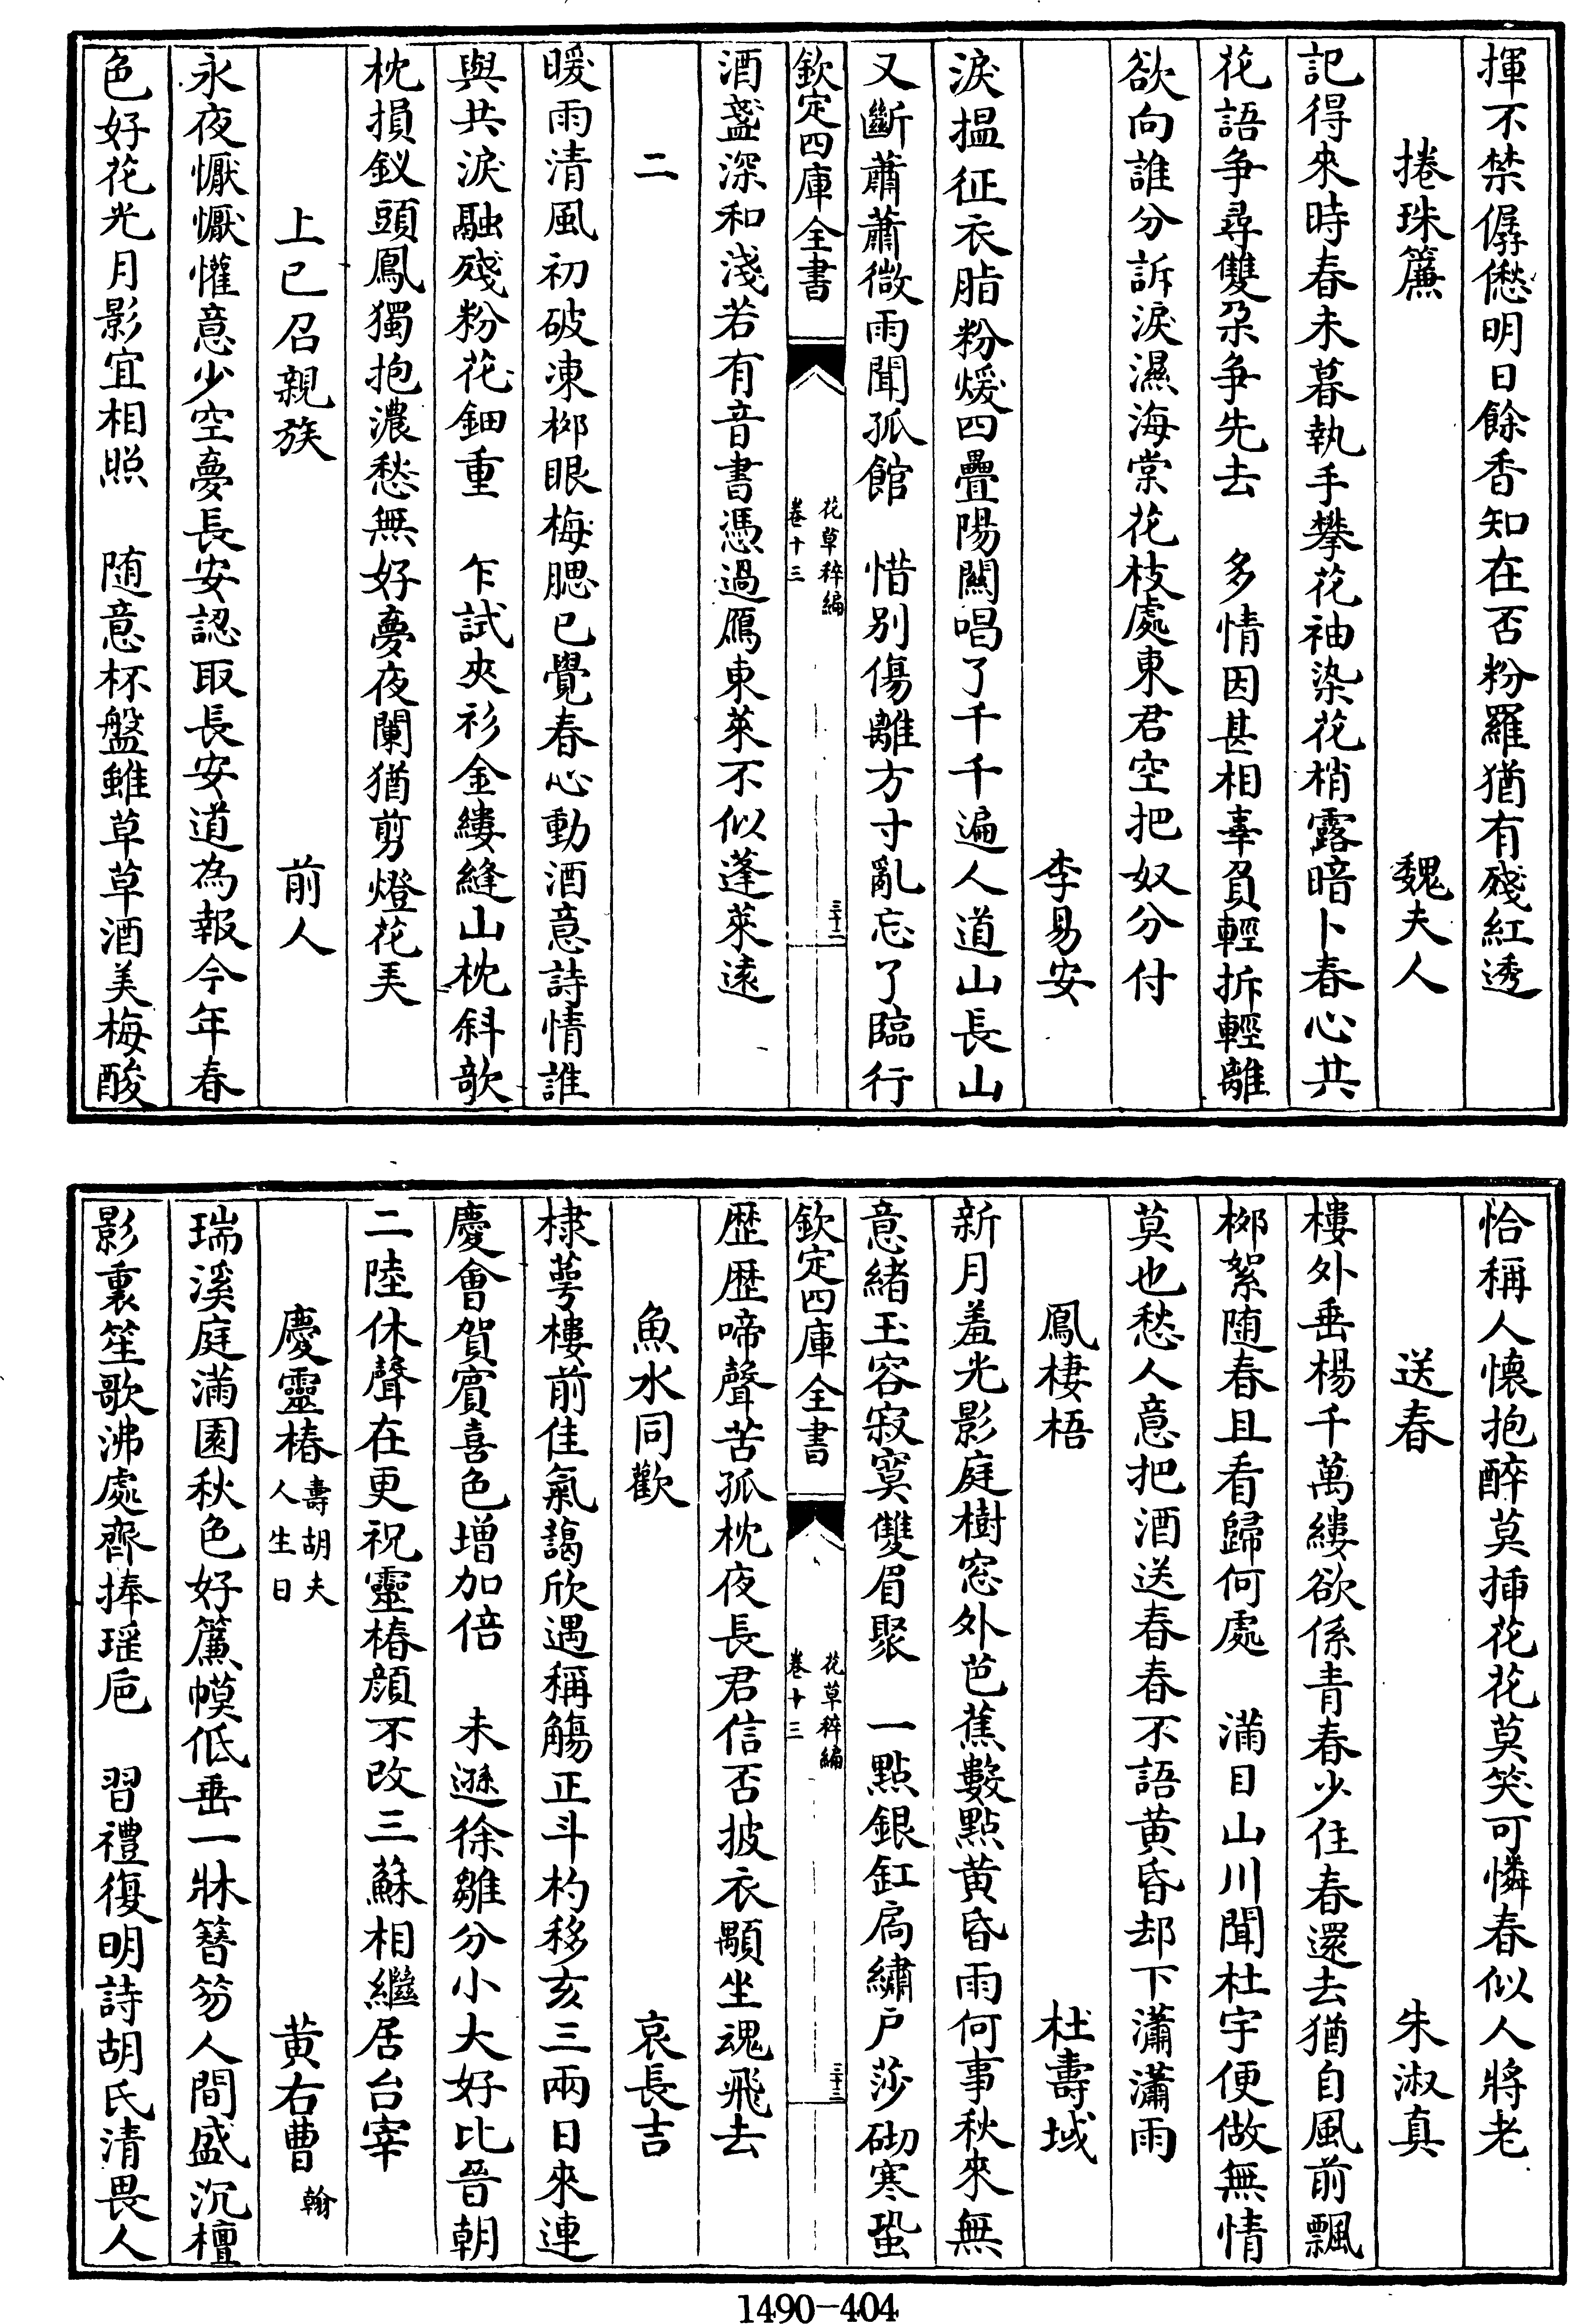 揮不禁僝僽明日餘香知在否粉羅猶有殘紅透
捲珠簾 魏夫人
記得來時春未暮執手攀花袖染花梢露暗卜春心共
花語争尋雙朶争先去 多情因甚相辜負輕拆輕離
欲向誰分訴淚濕海棠花枝處東君空把奴分付
李易安
淚搵征衣脂粉煖四疊陽關唱了千千遍人道山長山
又斷蕭蕭微雨聞孤館 惜别傷離方寸亂忘了臨行
欽定四庫全書 花草稡編 卷十三 三十二
酒盞深和淺若有音書憑過鴈東萊不似蓬萊遠
二
暖雨清風初破凍桺眼梅腮已覺春心動酒意詩情誰
與共淚融殘粉花鈿重 乍試夾衫金縷縫山枕斜欹
枕損釵頭鳳獨抱濃愁無好夢夜闌猶剪燈花弄
上巳召親族 前人
永夜懨懨懽意少空夢長安認取長安道為報今年春
色好花光月影宜相照 随意杯盤雖草草酒美梅酸
恰稱人懷抱醉莫揷花花莫笑可憐春似人將老
送春 朱淑真
樓外垂楊千萬縷欲係青春少住春還去猶自風前飄
桺絮随春且看歸何處 滿目山川聞杜宇便做無情
莫也愁人意把酒送春春不語黄昏却下瀟瀟雨
鳳棲梧 杜壽域
新月羞光影庭樹窓外芭蕉數點黄昏雨何事秋來無
意緒玉容寂寞雙眉聚 一點銀釭扃繡戶莎砌寒蛩
欽定四庫全書 花草稡編 卷十三 三十三
歴歴啼聲苦孤枕夜長君信否披衣顒坐魂飛去
魚水同歡 哀長吉
棣萼樓前佳氣藹欣遇稱觴正斗杓移亥三兩日來連
慶會賀賔喜色增加倍 未遜徐雛分小大好比晉朝
二陸休聲在更祝靈椿顔不改三蘇相繼居台宰
慶靈椿 壽胡夫人生日 黄右曹 翰
瑞溪庭滿園秋色好簾幙低垂一牀簮笏人間盛沉檀
影裏笙歌沸處齊捧瑶巵 習禮復明詩胡氏清畏人
1490-404